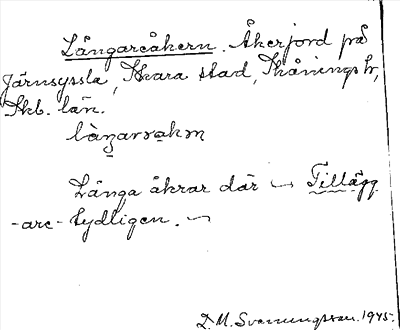 Långareåkern. Åkerjord på
Järnsyssla, Skara stad, Skånings hd,
Skb. län.
Långa åkrar där ⁓ Tillägg
-are- tydligen. ⁓
D. M. Svenningsson. 1945.